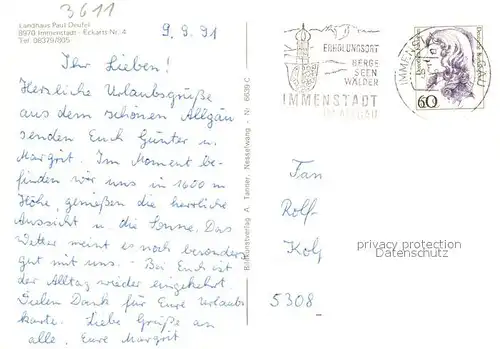 3611
Landhaus Paul Deufel
8970 Immenstadt - Eckarts Nr. 4
Tel. 08379/805
9. 9. 91
Ihr Lieben!
Herzliche Urlaubsgrüße
aus dem schönen Allgäu
senden Euch Günter u.
Margrit. Im Moment be-
finden wir uns in 1600 m
Höhe, genießen die herrliche
Aussicht u. die Sonne. Das
Wetter meint es noch besonders
gut mit uns. - Bei Euch ist
der Alltag wieder eingekehrt.
Vielen Dank für Eure Urlaubs
karte. Liebe Grüße an
alle. Eure Margrit
Bildkunstverlag A. Tanner, Nesselwang - Nr. 6639 C
ERHOLUNGSORT
BERGE
SEEN
WÄLDER
IMMENSTADT
IM ALLGÄU
60
Fam
Rolf
Kolf
5308
privacy protection
Datenschutz